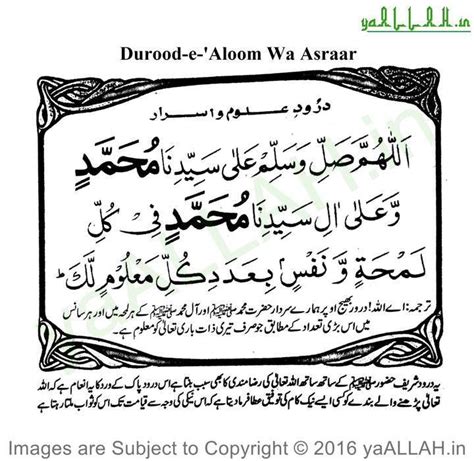 yaALLAH.in
Durood-e-'Aloom Wa Asraar
درُود عـلـوم و اسـرار
اَللّٰهُمَّ صَلِّ وَسَلِّمْ عَلٰى سَيِّدِنَا مُحَمَّدٍ
وَّعَلٰى اٰلِ سَيِّدِنَا مُحَمَّدٍ فِىْ كُلِّ
لَمْحَةٍ وَّنَفَسٍ بِعَدَدِ كُلِّ مَعْلُوْمٍ لَّكَ ط
ترجمہ: اے اللہ! درود بھیج اوپر ہمارے سردار حضرت محمد ﷺ اور آل محمد ﷺ کے ہر لمحہ میں اور ہر سانس
میں اس بڑی تعداد کے مطابق جو صرف تیری ذات باری تعالیٰ کو معلوم ہے۔
یہ درود شریف حضور ﷺ کے ساتھ ساتھ اللہ تعالیٰ کی رضا مندی کا بھی سبب بنتا ہے اس درود پاک کے ورد کا یہ انعام ہے کہ اللہ
تعالیٰ پڑھنے والے بندے کو کسی ایسے نیک کام کی توفیق عطا فرما دیتا ہے کہ اس نیکی کی وجہ سے قیامت تک اس کو ثواب ملتا رہتا ہے
yaALLAH.in
Images are Subject to Copyright © 2016 yaALLAH.in